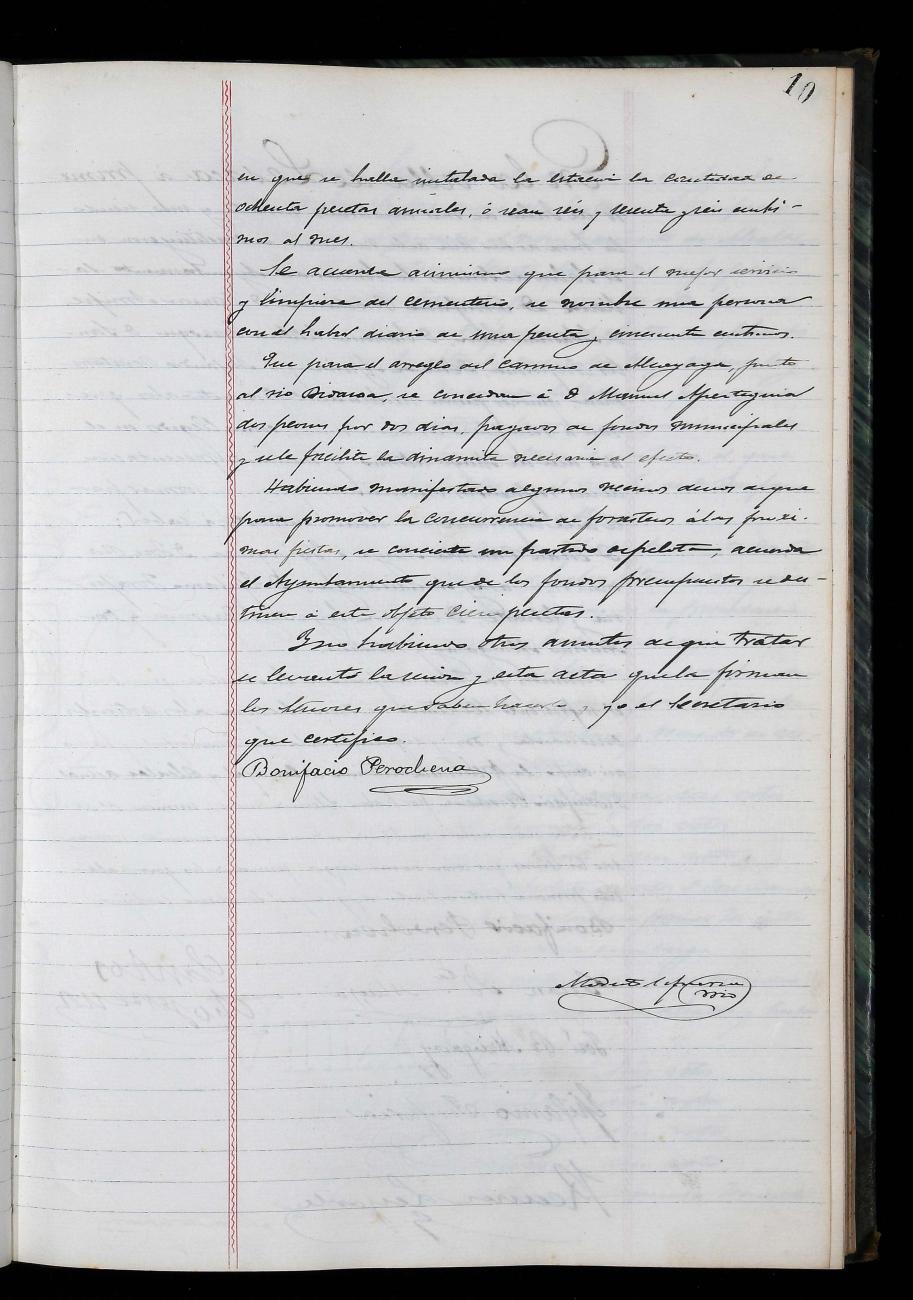 10
en que se halla instalada la estacion la cantidad de
ochenta pesetas anuales, ó sean seis y sesenta y seis centi-
mos al mes.
Se acuerda asimismo que para el mejor servicio
y limpieza del cementerio, se nombre una persona
con el haber diario de una peseta y cincuenta centimos.
Que para el arreglo del camino de, junto
al rio Bidasoa, se concedan á D Manuel Apesteguia
dos peones por dos dias, pagados de fondos municipales
y se le facilite la dinamita necesaria al efecto.
Habiendo manifestado algunos vecinos deseos de que
para promover la concurrencia de forasteros á las proxi-
mas fiestas, se concierte un partido de pelota, acuerda
el Ayuntamiento que de los fondos presupuestos se des-
tinen á este objeto cien pesetas.
Y no habiendo otros asuntos de que tratar
se levantó la sesion y esta acta que la firman
los Señores que saben hacerlo, y yo el Secretario
que certifico.
Bonifacio Perochena